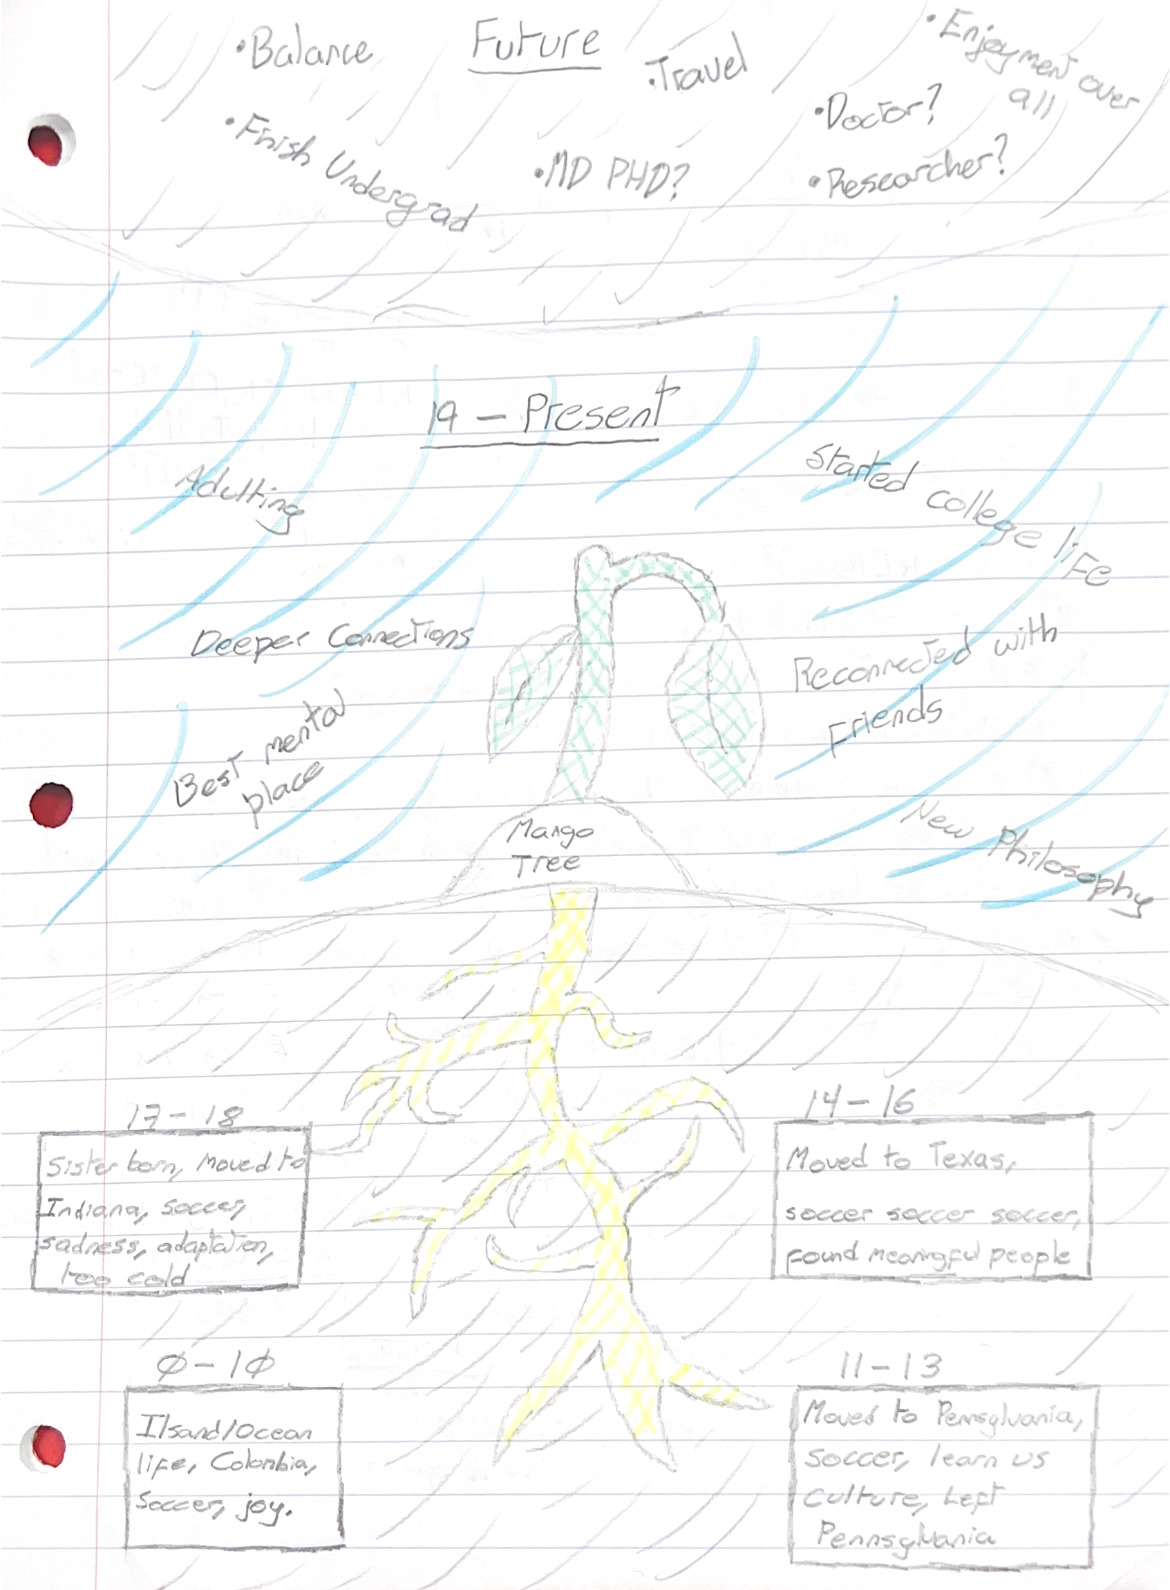 Future
• Balance
• Travel
• Enjoyment over
all
• Doctor?
• Finish Undergrad
• MD PHD?
• Researcher?
19 - Present
Adulting
Started college life
Deeper Connections
Reconnected with
Friends
Best mental
place
New Philosophy
Mango
Tree
17-18
Sister born, moved to
Indiana, soccer,
sadness, adaptation,
too cold
14-16
Moved to Texas,
soccer soccer soccer,
found meaningful people
0-10
Ilsand/Ocean
life, Colombia,
Soccer, joy.
11-13
Moved to Pennsylvania,
soccer, learn US
culture, Left
Pennsylvania